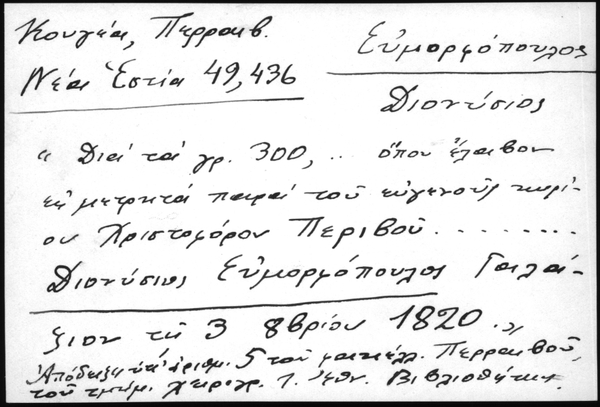 Κουγέα, Περραιβ.
Νέα Ἑστία 49, 436
Εὐμορφόπουλος
Διονύσιος
“ Διά τά γρ. 300, ... ὅπου ἔλαβον
εἰς μετρητά παρά τοῦ εὐγενοῦς κυρί-
ου Χριστοφόρου Περιβοῦ ........
Διονύσιος Εὐμορφόπουλος Γαλά-
ζιον τῇ 3 8βρίου 1820.„
Ἀπόδειξη ὑπ' ἀριθμ. 5 τοῦ φακέλλ. Περραιβοῦ,
τοῦ τμήμ. χειρογρ. τ. Ἐθν. Βιβλιοθήκης.